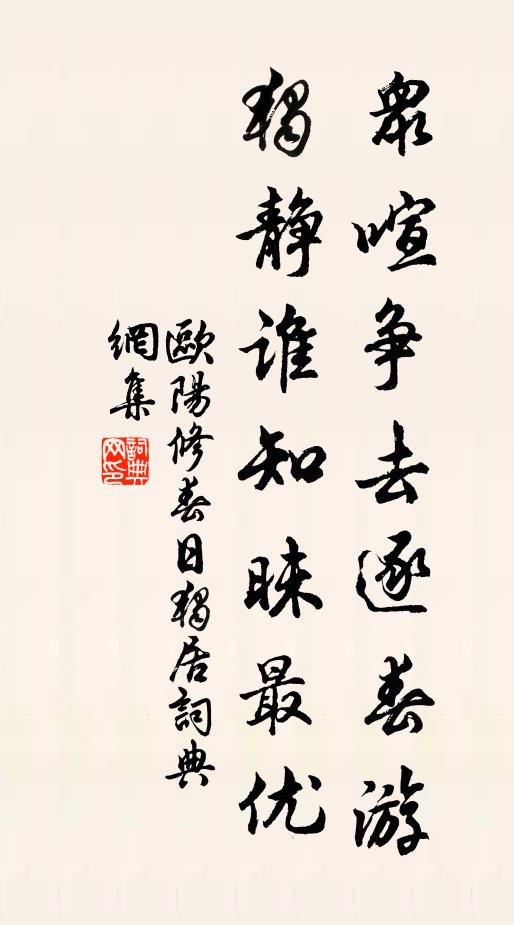 眾喧争去逐春游
獨静谁知味最优
歐陽修春日獨居詞典
網集
詞典
网印